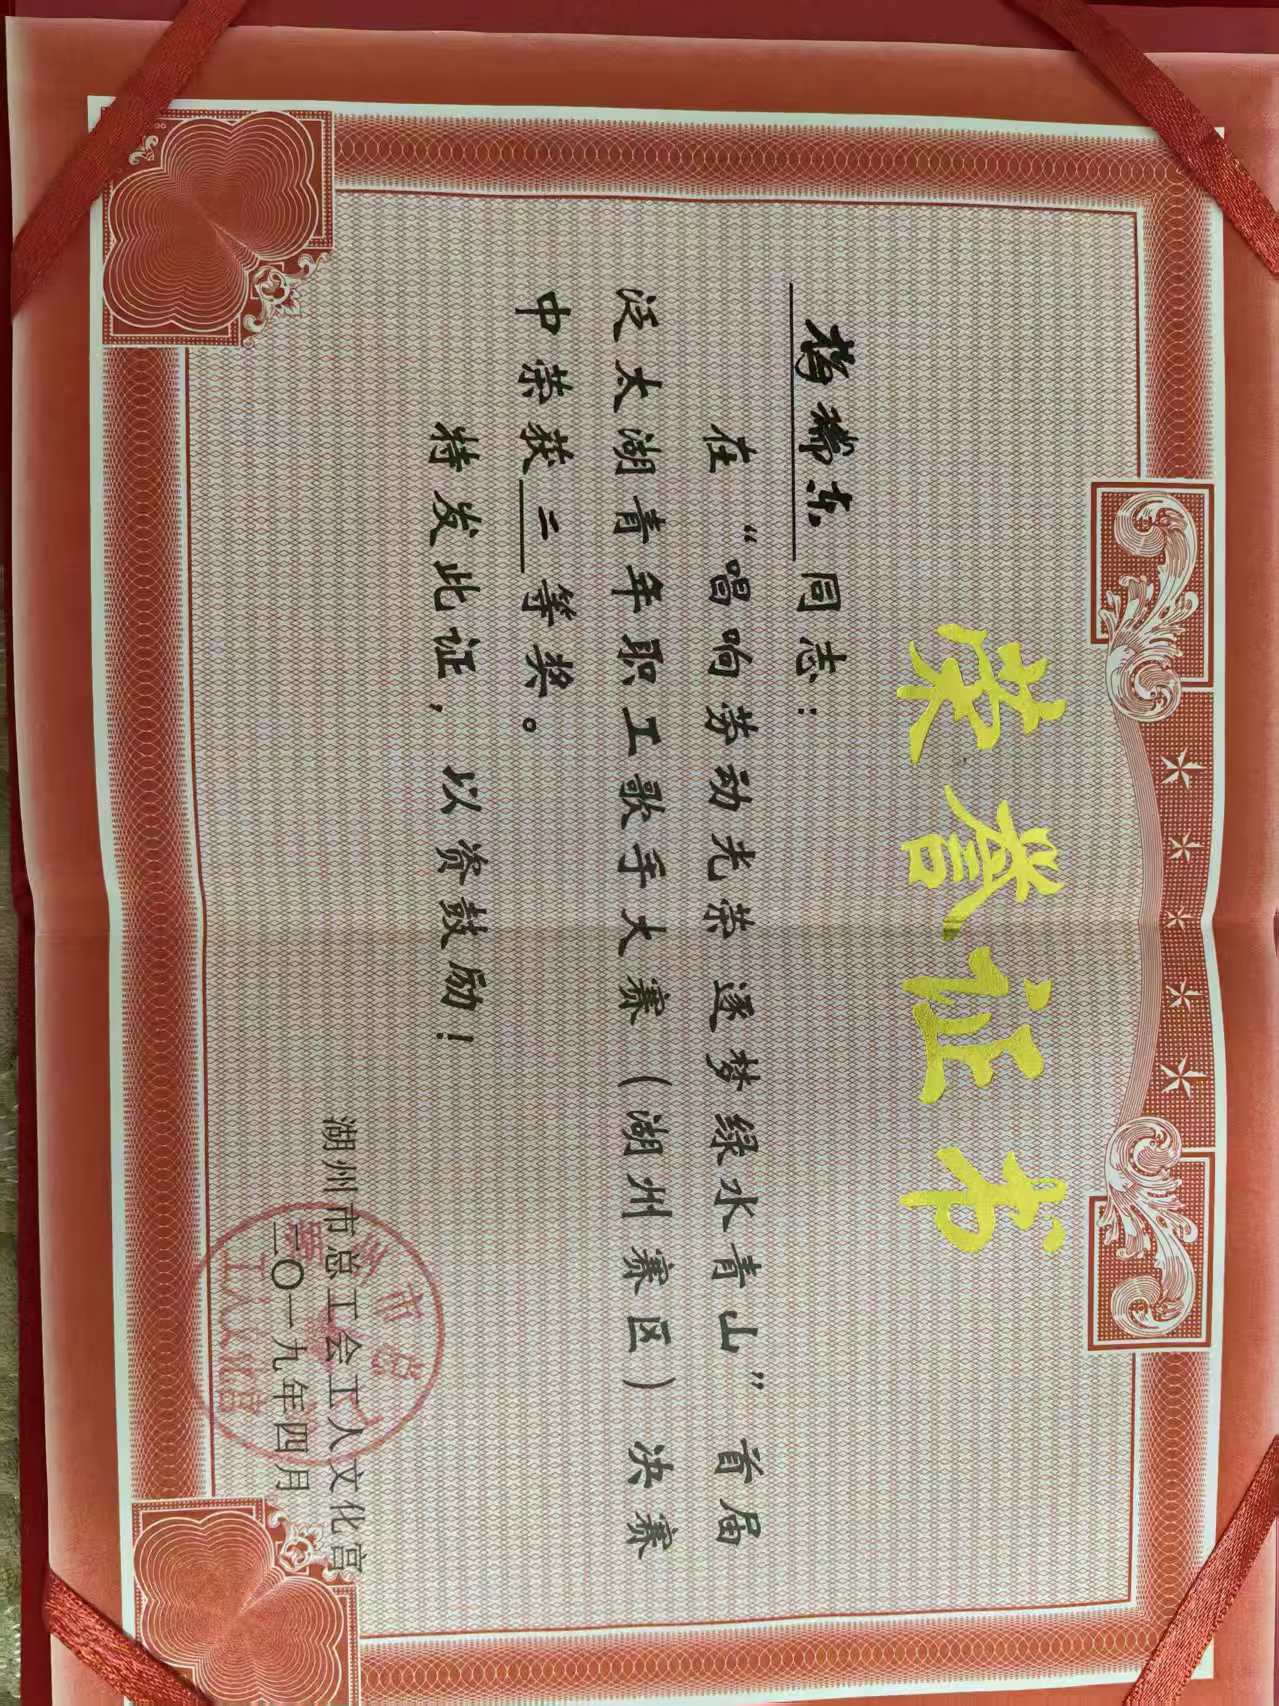 荣誉证书
同志：
在“唱响劳动光荣 逐梦绿水青山”首届
泛太湖青年职工歌手大赛（湖州赛区）决赛
中荣获二等奖。
特发此证，以资鼓励！
湖州市总工会工人文化宫
二〇一九年四月